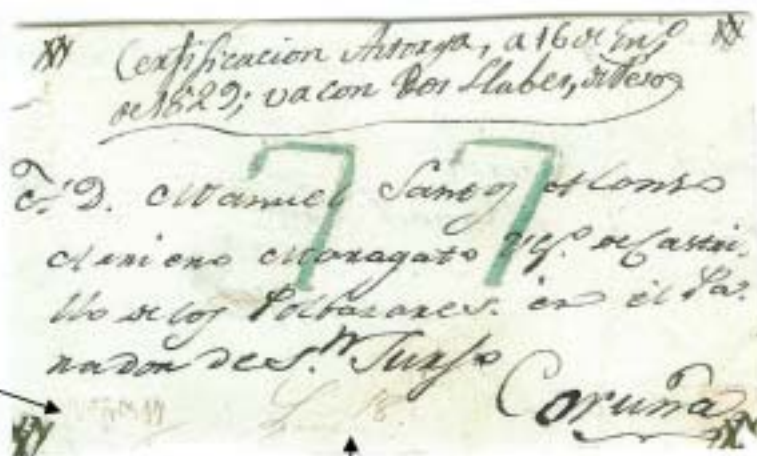 Certificacion Astorga, a 16 de En.º
de 1829; va con Dos Llabes, de Peso
77
A D. Manuel Santos Alonso
Arriero Maragato V.º de Castri-
llo de los Polbazares. en el Pa-
rador de S.n Turso
Coruña